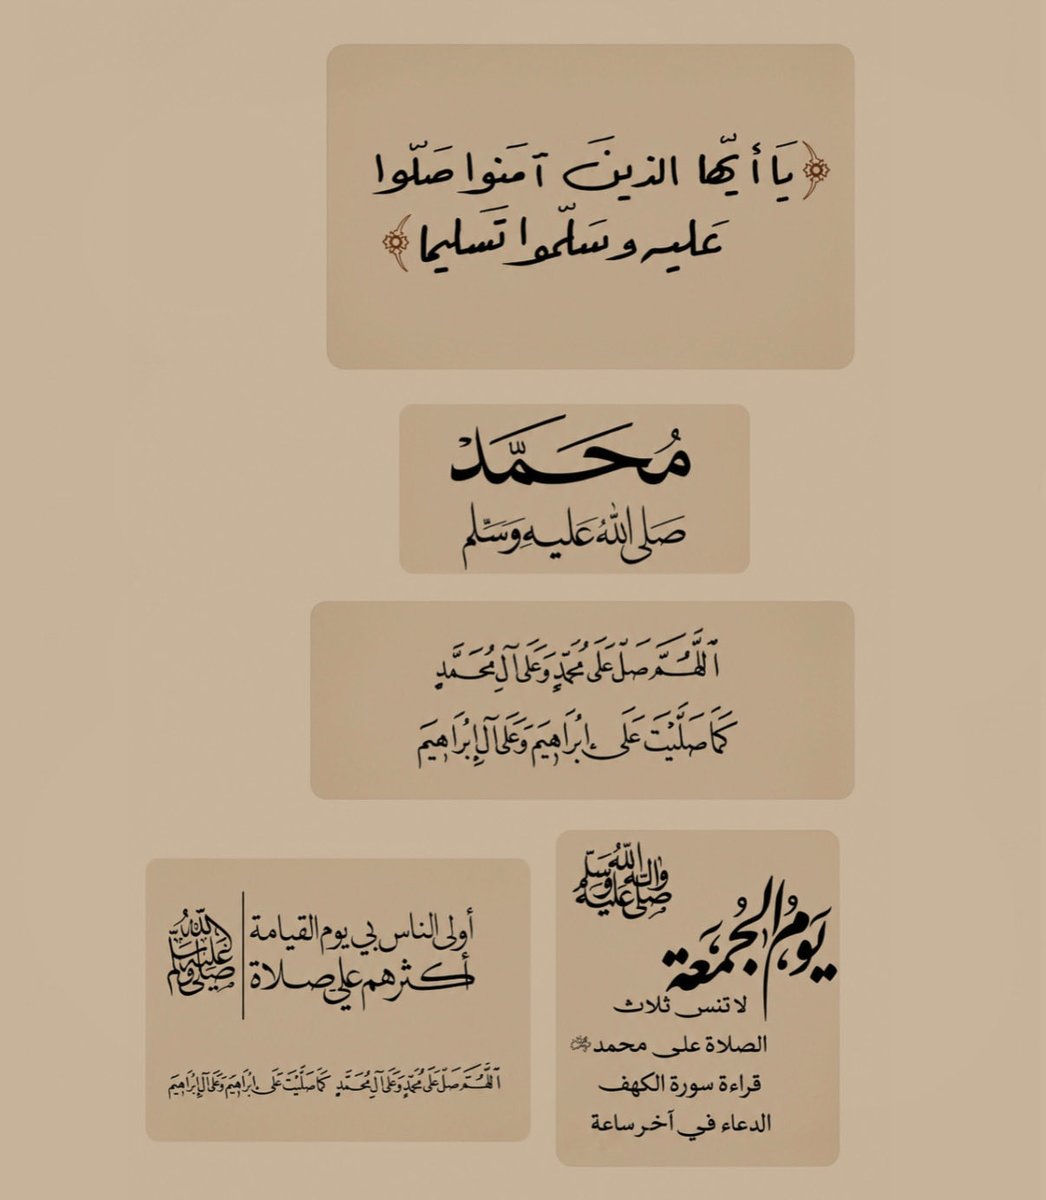 ﴿يَا أيّها الذينَ آمَنوا صَلّوا
عَليه وسَلّموا تَسليما﴾
مُحَمَّدْ
صَلى اللهُ عَليهِ وَسَلّم
ٱللَّهُمَّ صَلِّ عَلَى مُحَمَّدٍ وَعَلَى آلِ مُحَمَّدٍ
كَمَا صَلَّيْتَ عَلَى إِبْرَاهِيمَ وَعَلَى آلِ إِبْرَاهِيمَ
يَومُ الجُمعَة
صلى الله عليه وآله وسلم
لا تنس ثلاث
الصلاة على محمد ﷺ
قراءة سورة الكهف
الدعاء في آخر ساعة
أولى الناس بي يوم القيامة
أكثرهم علي صلاة
صلى الله عليه وسلم
ٱللَّهُمَّ صَلِّ عَلَى مُحَمَّدٍ وَعَلَى آلِ مُحَمَّدٍ كَمَا صَلَّيْتَ عَلَى إِبْرَاهِيمَ وَعَلَى آلِ إِبْرَاهِيمَ